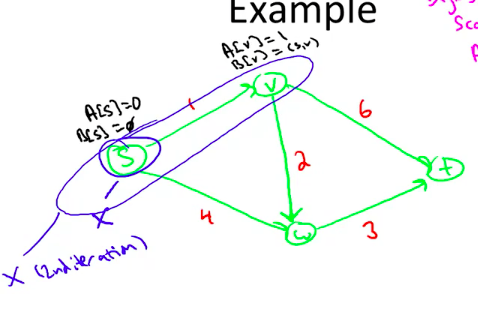 Example
A[v]=1
B[v]=(s,v)
A[s]=0
B[s]=ø
1
v
6
s
2
t
X
4
w
3
X (2nd iteration)